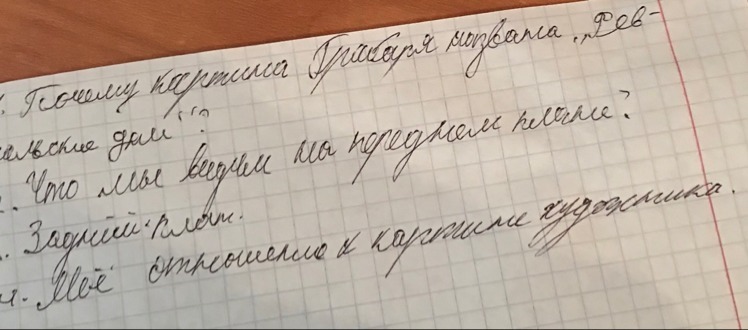 . Почему картина Грабаря названа „Фев-
альские дали"?
. Что мы видим на переднем плане?
. Задний план.
. Моё отношение к картине художника.